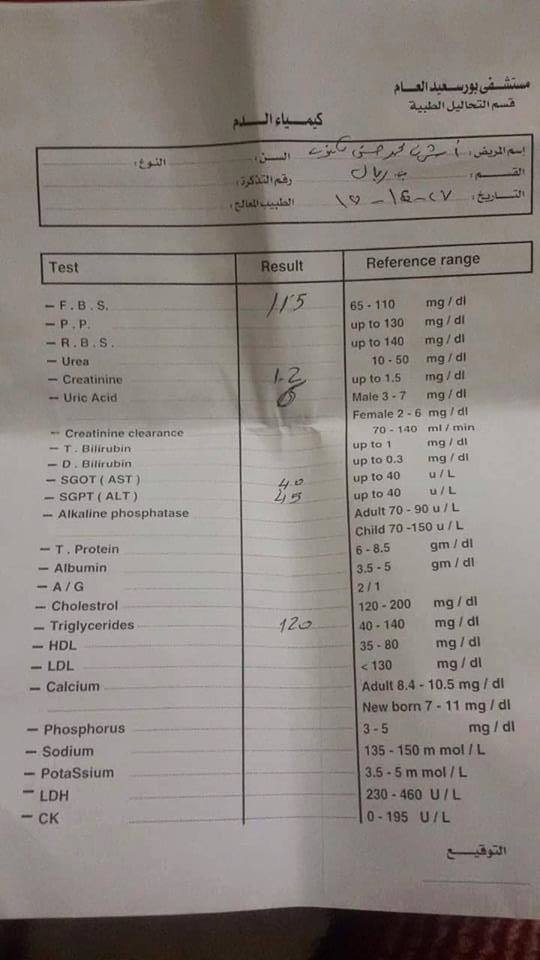 مستشفى بورسعيد العام
قسم التحاليل الطبية
كيمياء الدم
إسم المريض: أشرف محمد حسنى السن: النوع:
القسم: رقم التذكرة:
التاريخ: الطبيب المعالج:
Test Result Reference range
– F . B . S . 115 65 - 110 mg / dl
– P . P . up to 130 mg / dl
– R . B . S . up to 140 mg / dl
– Urea 10 - 50 mg / dl
– Creatinine 1.2 up to 1.5 mg / dl
– Uric Acid 6 Male 3 - 7 mg / dl
Female 2 - 6 mg / dl
– Creatinine clearance 70 - 140 ml / min
– T . Bilirubin up to 1 mg / dl
– D . Bilirubin up to 0.3 mg / dl
– SGOT ( AST ) 40 up to 40 u / L
– SGPT ( ALT ) 45 up to 40 u / L
– Alkaline phosphatase Adult 70 - 90 u / L
Child 70 -150 u / L
– T . Protein 6 - 8.5 gm / dl
– Albumin 3.5 - 5 gm / dl
– A / G 2 / 1
– Cholestrol 120 - 200 mg / dl
– Triglycerides 120 40 - 140 mg / dl
– HDL 35 - 80 mg / dl
– LDL < 130 mg / dl
– Calcium Adult 8.4 - 10.5 mg / dl
New born 7 - 11 mg / dl
– Phosphorus 3 - 5 mg / dl
– Sodium 135 - 150 m mol / L
– PotaSsium 3.5 - 5 m mol / L
– LDH 230 - 460 U / L
– CK 0 - 195 U / L
التوقيع